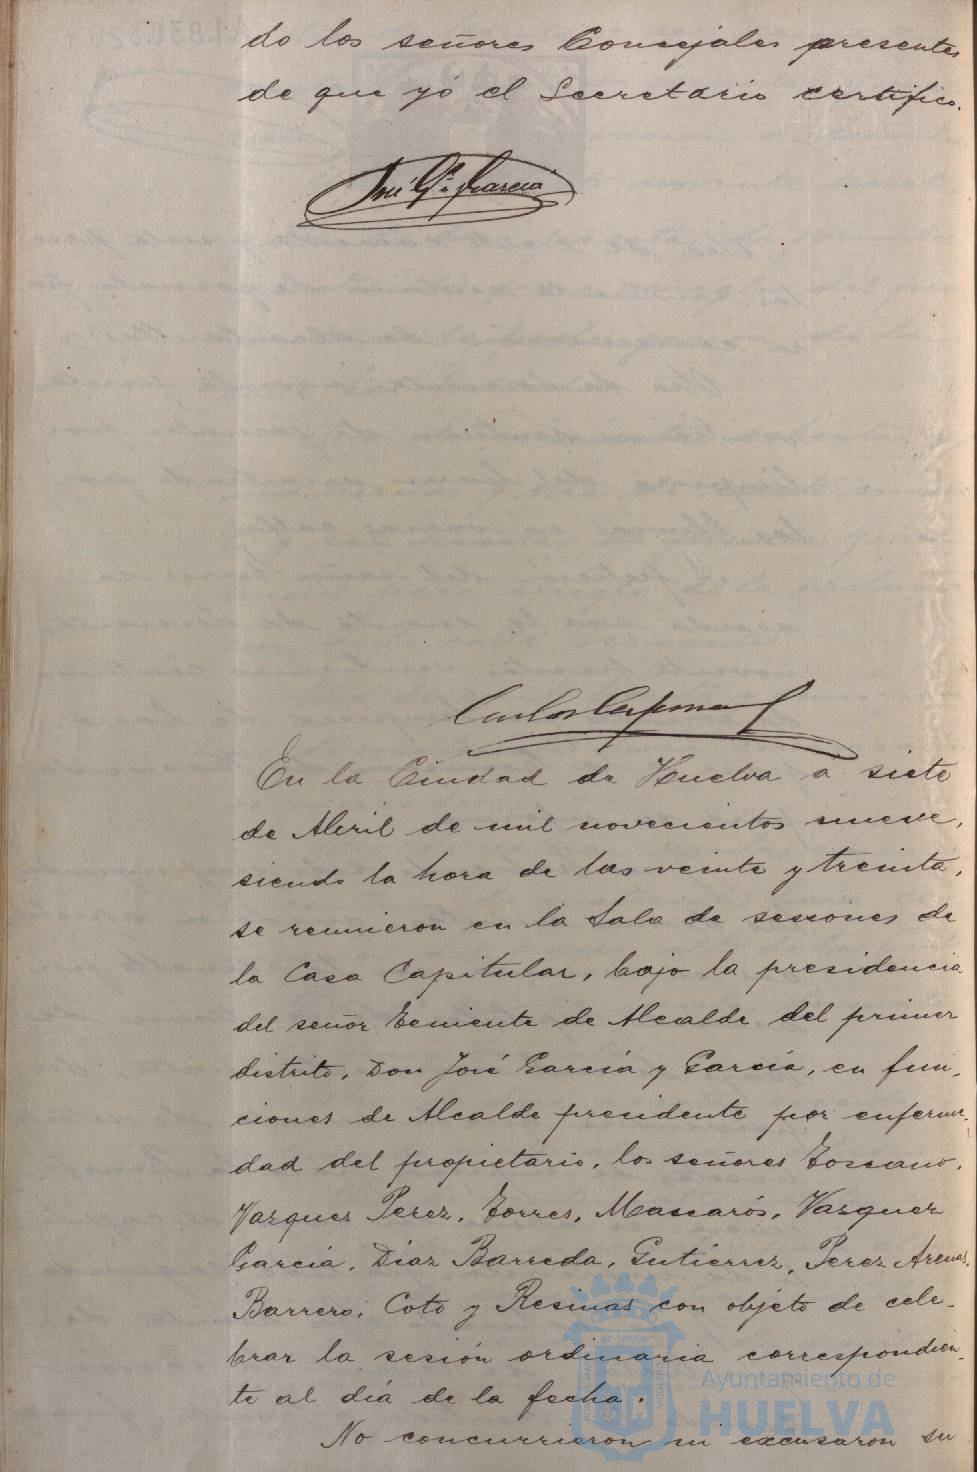 do los señores Concejales presentes
de que yó el Secretario certifico.
José Gª García
En la Ciudad de Huelva a siete
de Abril de mil novecientos nueve,
siendo la hora de las veinte y treinta,
se reunieron en la Sala de sesiones de
la Casa Capitular, bajo la presidencia
del señor Teniente de Alcalde del primer
distrito, Don José García y García, en fun-
ciones de Alcalde presidente por enferme-
dad del propietario, los señores Toscano,
Vazquez Perez, Torres, Mascarós, Vazquez
García, Díaz Barreda, Gutierrez, Perez Arenas,
Barrero, Coto y Resinas con objeto de cele-
brar la sesión ordinaria correspondien-
te al día de la fecha.
Ayuntamiento de
HUELVA
No concurrieron ni excusaron su